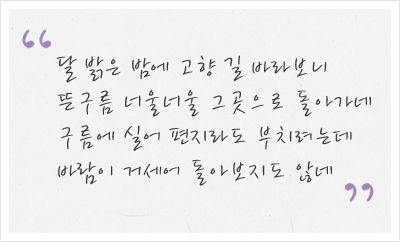 달 밝은 밤에 고향 길 바라보니
뜬구름 너울너울 그곳으로 돌아가네
구름에 실어 편지라도 부치려는데
바람이 거세어 돌아보지도 않네